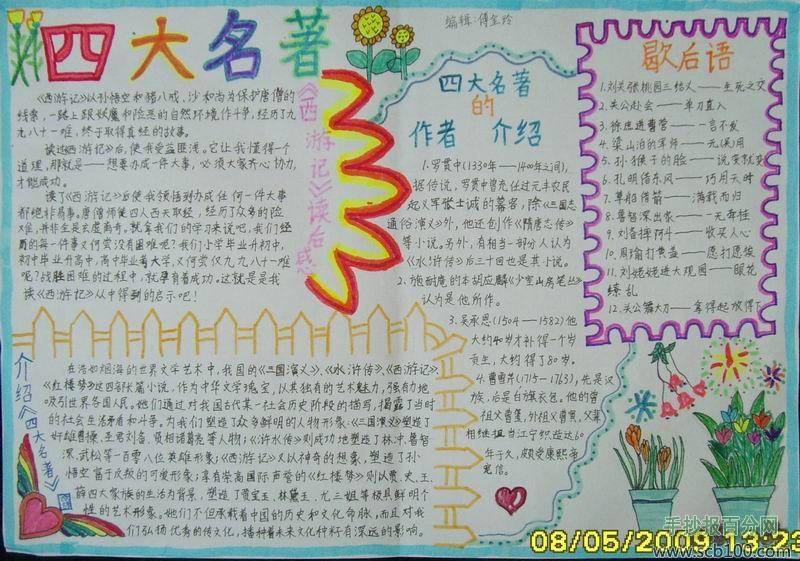 四大名著
编辑:傅金玲
《西游记》以孙悟空和猪八戒、沙和尚为保护唐僧的
线索,一路上跟妖魔和险恶的自然环境作斗争,经历了九
九八十一难,终于取得真经的故事。
读过《西游记》后,使我受益匪浅。它让我懂得个
道理,那就是——想要办成一件大事,必须大家齐心协力,
才能成功。
读了《西游记》后使我领悟到办成任何一件大事
都绝非易事。唐僧师徒四人西天取经,经历了众多的险
就拿我们的学习来说吧,我们经
历的每一件事又何尝没有困难呢?我们小学毕业升初中,
初中毕业升高中,高中毕业考大学,又何尝仅九九八十一难
呢?战胜困难的过程中,就孕育着成功。这就是是我
读《西游记》从中得到的启示吧!
《西游记》读后感
四大名著
的
作者 介绍
1.罗贯中(1330年——1400年之间),
据传说,罗贯中曾充任过元丰农民
起义军张士诚的幕客,除《三国志
通俗演义》外,他还创作《隋唐志传》
等小说。另外,有相当一部分人认为
《水浒传》后三十回也是其手说。
2.施耐庵的本胡应麟《少室山房笔丛》
认为是他所作。
3.吴承恩(1504——1582)他
大约40岁才补得一个岁
贡生,大约得了80岁。
4.曹雪芹(1715—1763),先是汉
族,后是白旗衣包,他的曾
祖父曹玺,外祖父曹寅,父辈
相继担当江宁织造达60
年于久,颇受康熙帝
宠信。
歇后语
1.刘关张桃园三结义——生死之交
2.关公赴会——单刀直入
3.徐庶进曹营——一言不发
4.梁山泊的军师——无(吴)用
5.孙猴子的脸——说变就变
6.孔明借东风——巧用天时
7.草船借箭——满载而归
8.鲁智深出家——一无牵挂
9.刘备摔阿斗——收买人心
10.周瑜打黄盖——愿打愿挨
11.刘姥姥进大观园——眼花
缭乱
12.关公舞大刀——拿得起放得下
介绍《四大名著》
在浩如烟海的世界文学艺术中,我国的《三国演义》、《水浒传》、《西游记》、
《红楼梦》这四部长篇小说,作为中华文学瑰宝,以其独有的艺术魅力,强有力地
吸引世界各国人民。他们通过对我国古代某一社会历史阶段的描写,揭露了当时
的社会生活矛盾和斗争。为我们塑造了众多鲜明的人物形象:《三国演义》塑造了
奸雄曹操、圣君刘备、贤相诸葛亮等人物;《水浒传》则成功地塑造了林冲、鲁智
深、武松等一百零八位英雄形象;《西游记》又以神奇的想象,塑造了孙
悟空富于反叛的可爱形象;享有崇高国际声誉的《红楼梦》则以贾、史、王、
薛四大家族的生活为背景,塑造了贾宝玉、林黛玉、尤三姐等极具鲜明个
性的艺术形象。他们不但承载着中国的历史和文化命脉,而且对我
们弘扬优秀的传文化,播种着未来文化种籽有深远的影响。
手抄报百分网
08/05/2009 13:23
www.scb100.com